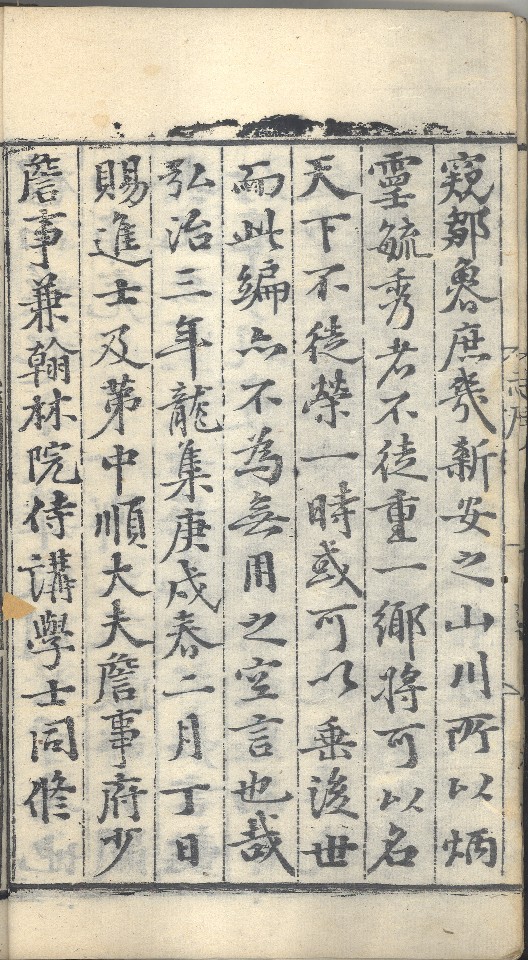 窺鄒魯庶幾新安之山川所以炳
靈毓秀者不徒重一鄉將可以名
天下不徒榮一時或可以垂後世
而此編亦不為無用之空言也哉
弘治三年龍集庚戌春二月丁日
賜進士及第中順大夫詹事府少
詹事兼翰林院侍講學士同修